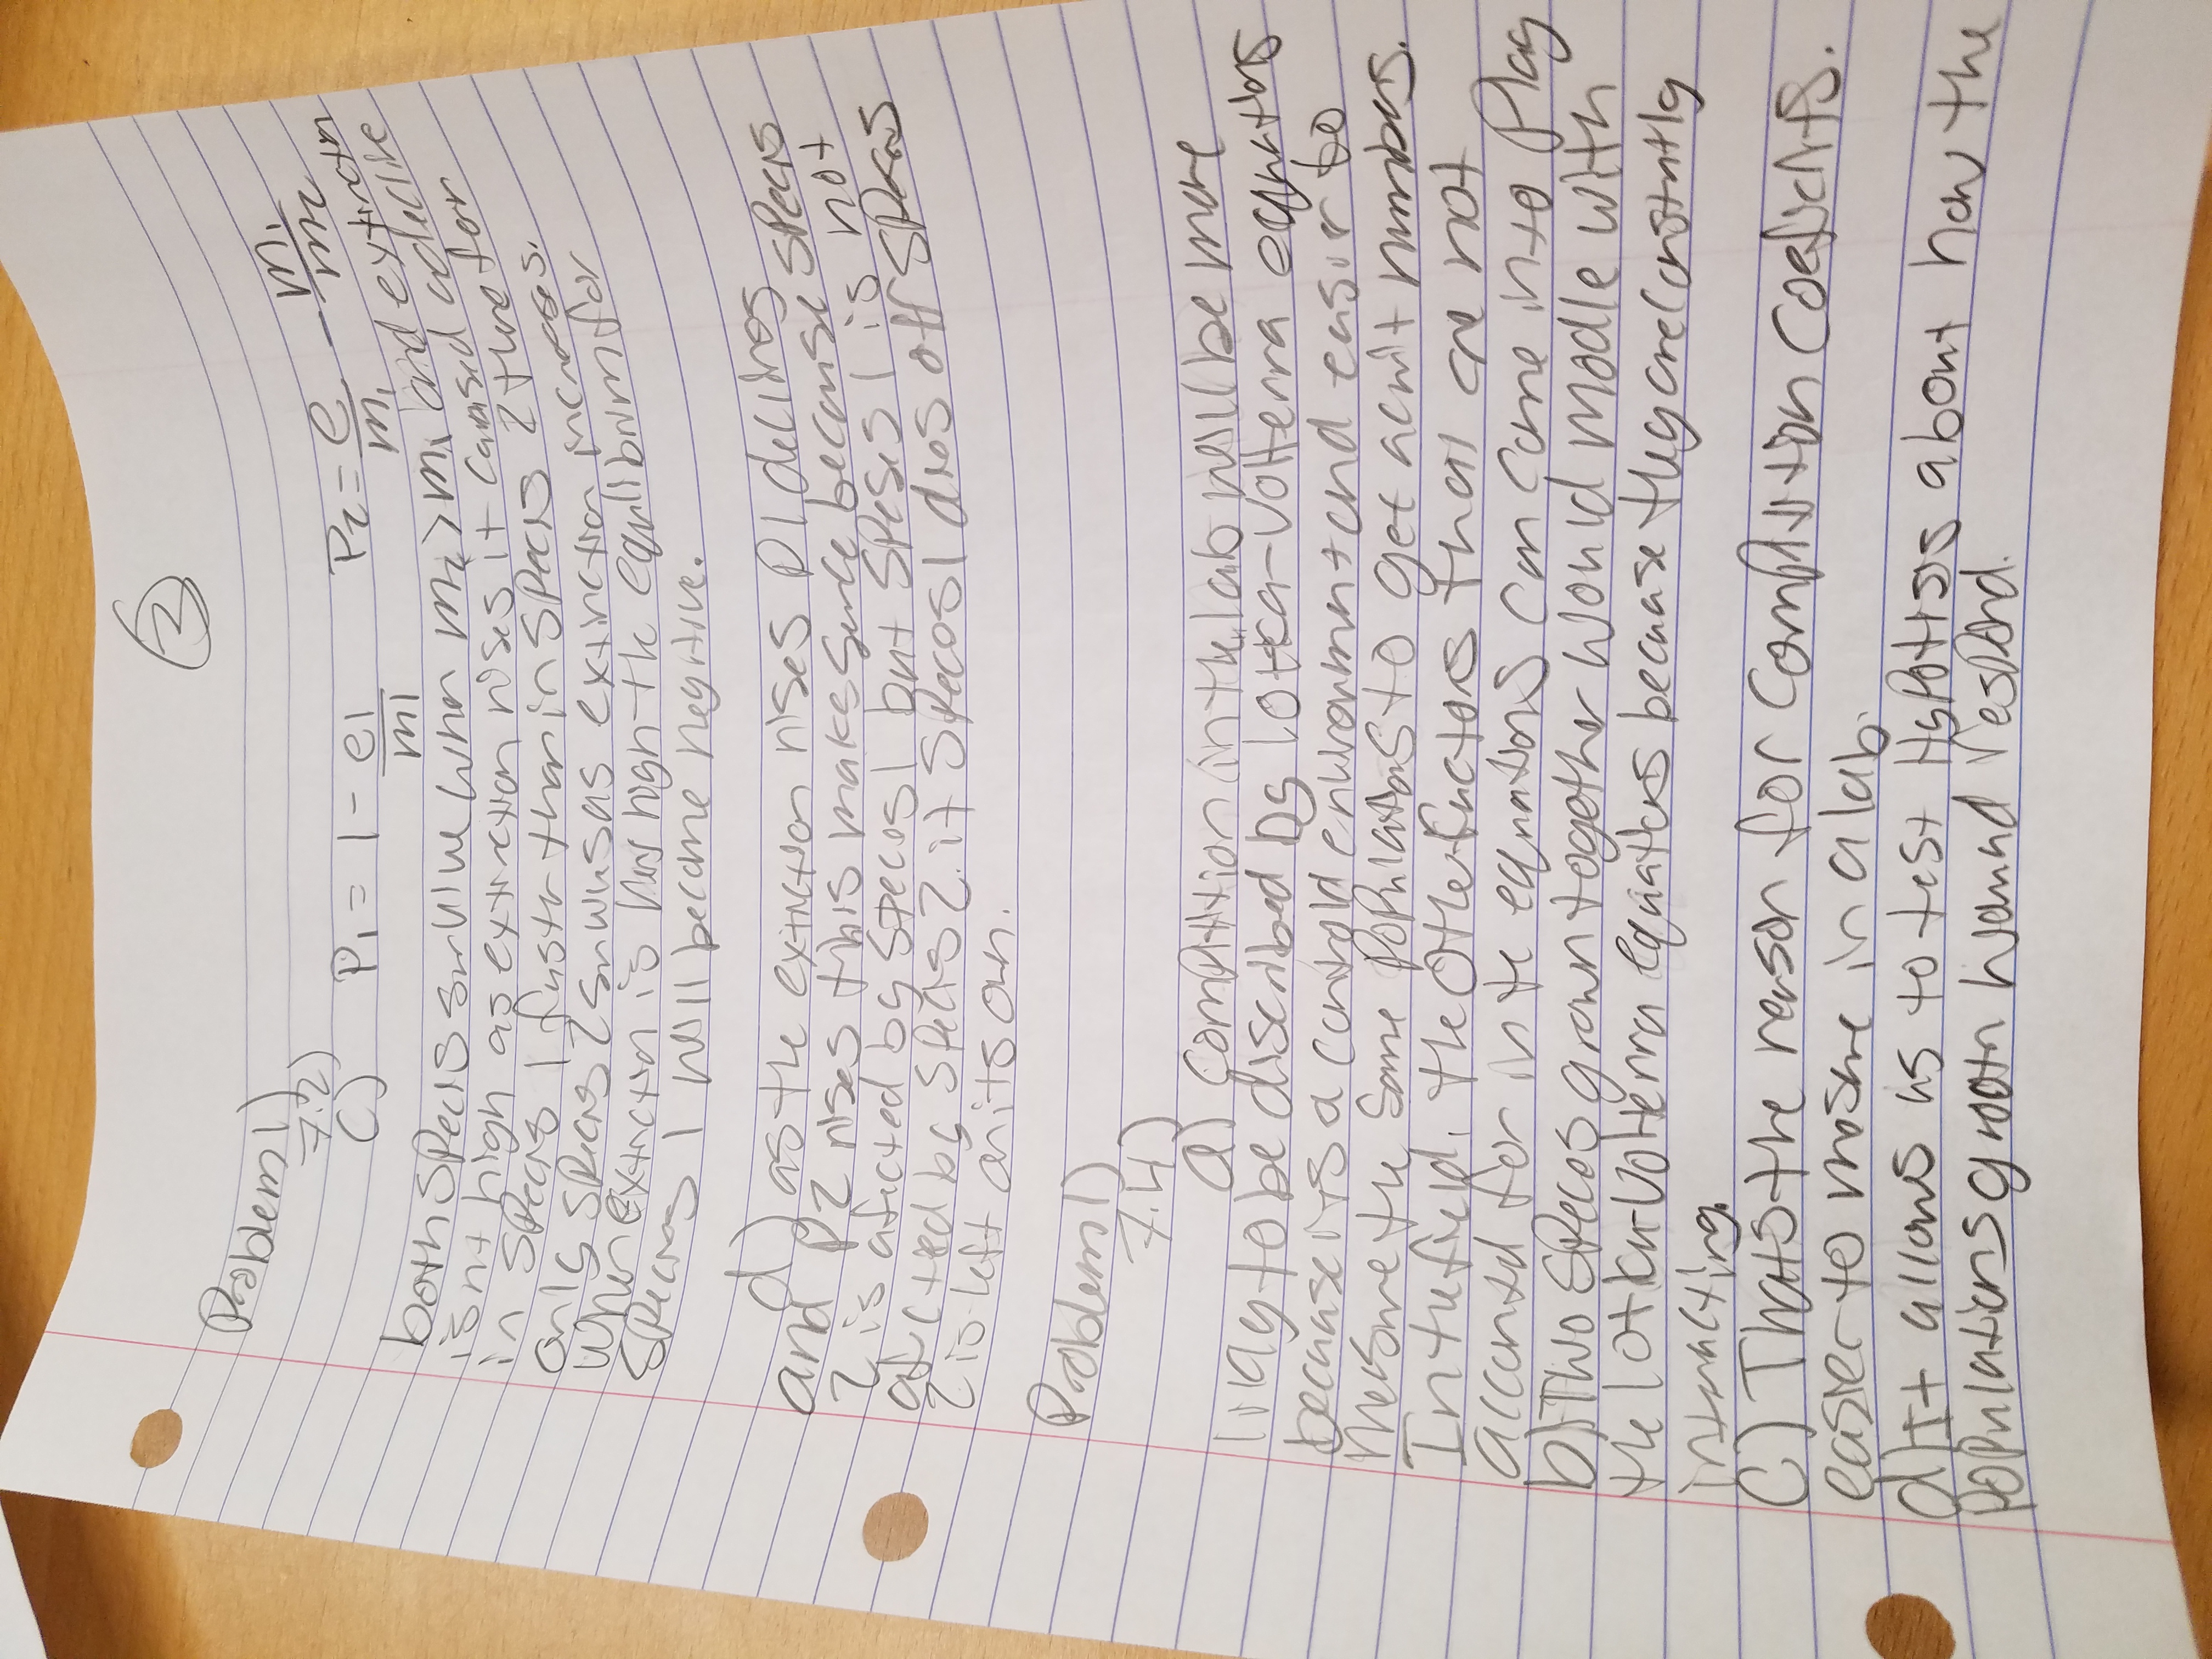 3
Problem 1)
7.2)
c) P₁ = 1 - e1/m1 P₂ = e/m₁ - m₁/m₂
both Specis survive when m₂ > m₁ and extinction
isnt high as extinction rises it caused a decline
in Specis 1 faster than in Specis 2 therefor
only Specis 2 as extinction increases.
When extinction is very high the equilibrium for
Specis 1 will become negitive.
d) as the extinction rises P1 declines
and P2 rises this makes sence because Specis
2 is afected by Speces 1 but Speses 1 is not
afected by Specis 2. if Speces 1 dies off Speces
2 is left on its own.
Problem 1)
7.4)
a) Compitition in the lab will be more
likly to be discribed by lotka-Volterra equations
because its a controld environment and easier to
mesure the Same Populations to get numbers.
In the field, the other factors that are not
acconted for in the equations can come into Play
b) Two Speces grown together Would modle with
the lotka-Volterra equations because they are constantly
interacting.
C) Thats the reason for Compitition Coeficints.
easier to mesure in a lab.
d) It allows us to test Hypotisis about how the
Populations grooth respond.